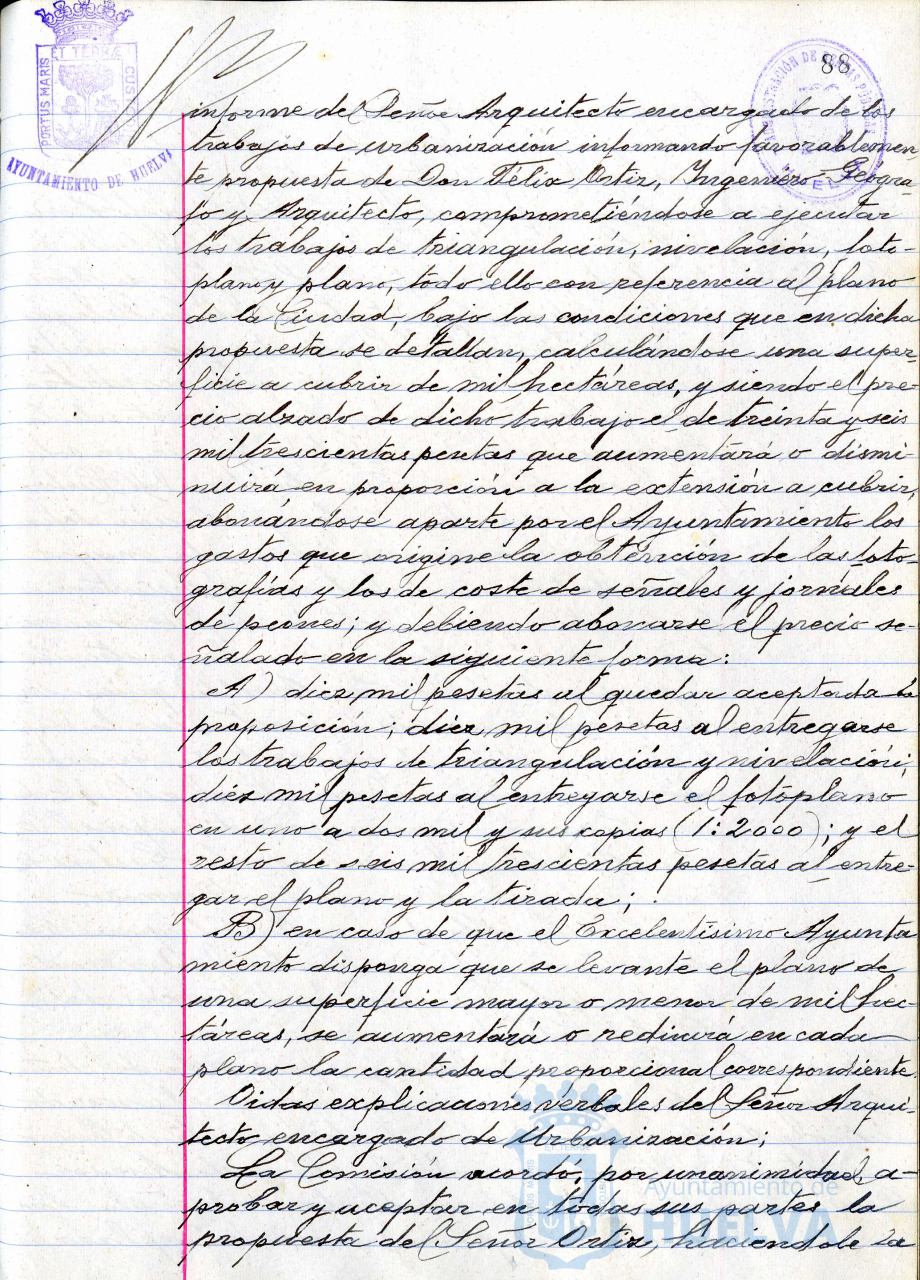 88
PORTUS MARIS
ET TERRÆ
CUSTODIA
AYUNTAMIENTO DE HUELVA
informe del Señor Arquitecto encargado de los
trabajos de urbanización informando favorablemen
te propuesta de Don Félix Ortiz, Ingeniero-Geógra-
fo y Arquitecto, comprometiéndose a ejecutar
los trabajos de triangulación, nivelación, foto-
plano y plano, todo ello con referencia al plano
de la Ciudad, bajo las condiciones que en dicha
propuesta se detallan, calculándose una super-
ficie a cubrir de mil hectáreas, y siendo el pre-
cio alzado de dicho trabajo el de treinta y seis
mil trescientas pesetas que aumentará o dismi
nuirá en proporción a la extensión a cubrir,
abonándose aparte por el Ayuntamiento los
gastos que origine la obtención de las foto-
grafías y los de coste de señales y jornales
de peones; y debiendo abonarse el precio se-
ñalado en la siguiente forma:
A) diez mil pesetas al quedar aceptada la
proposición; diez mil pesetas al entregarse
los trabajos de triangulación y nivelación;
diez mil pesetas al entregarse el fotoplano
en uno a dos mil y sus copias (1:2000); y el
resto de seis mil trescientas pesetas al entre-
gar el plano y la tirada;
B) en caso de que el Excelentísimo Ayunta
miento disponga que se levante el plano de
una superficie mayor o menor de mil hec-
táreas, se aumentará o reducirá en cada
plano la cantidad proporcional correspondiente.
Oidas explicaciones verbales del Señor Arqui-
tecto encargado de Urbanización;
La Comisión acordó, por unanimidad, a-
probar y aceptar en todas sus partes la
propuesta del Señor Ortiz, haciéndole la
Ayuntamiento de
HUELVA